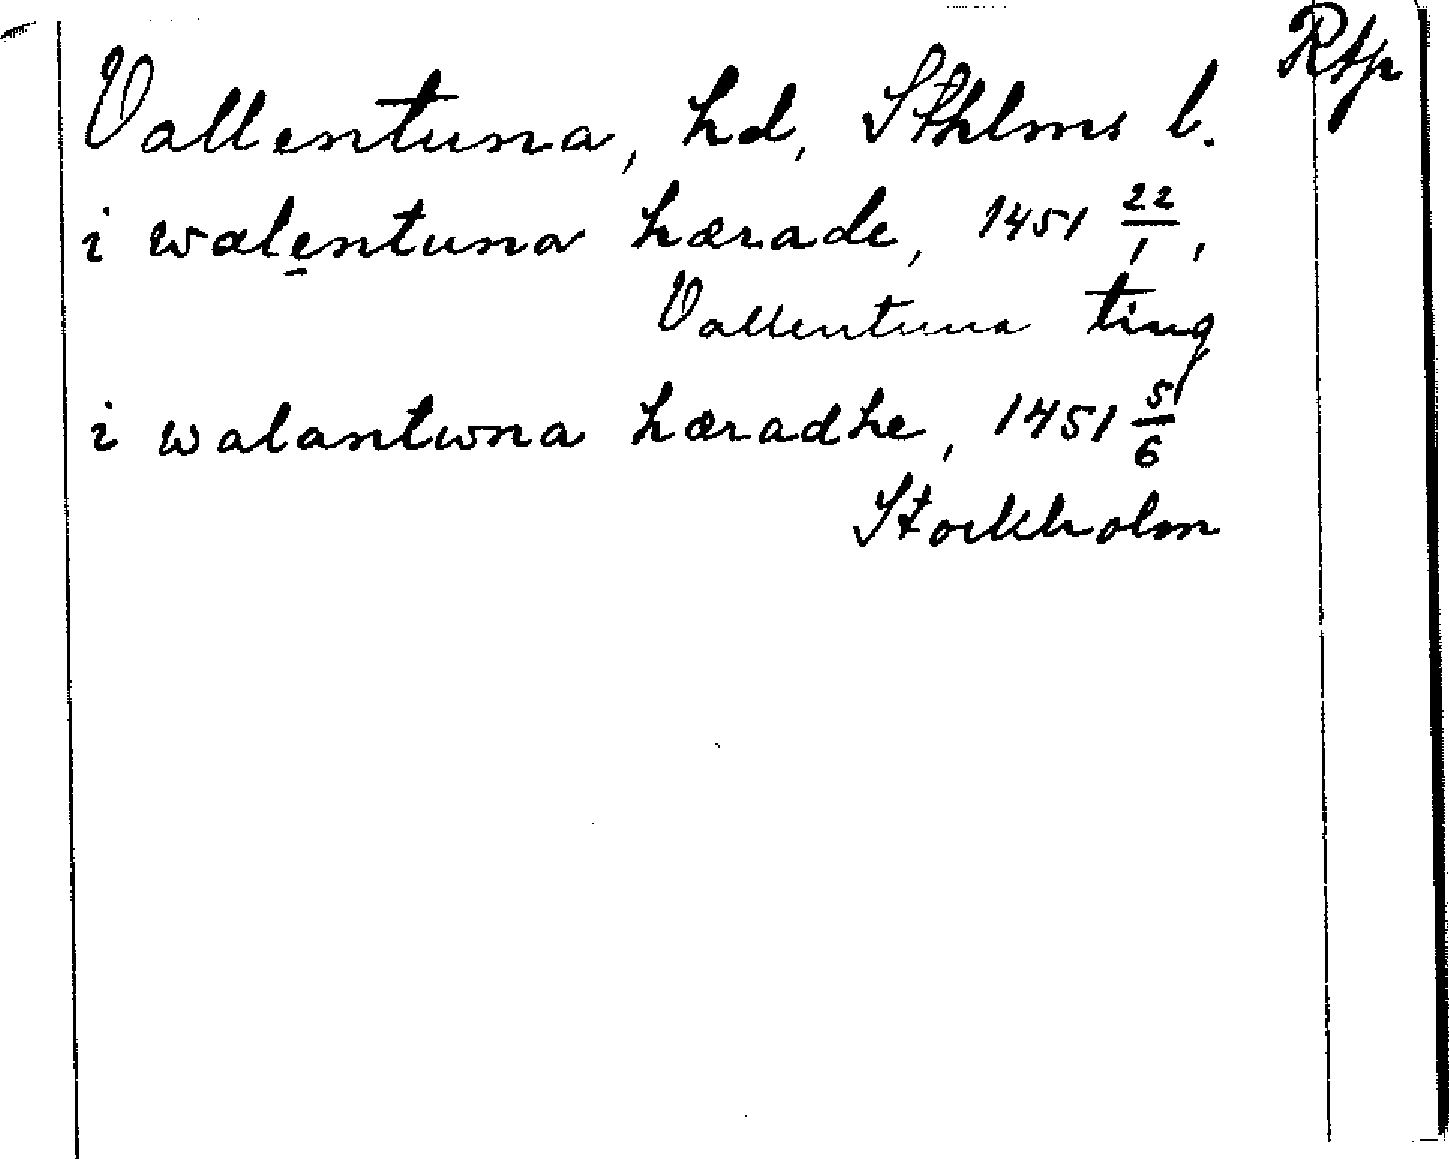 Rtp
Vallentuna, hd, Sthlms l.
i walentuna hærade, 1451 22/1,
Vallentuna ting
i walantwna hæradhe, 1451 5/6
Stockholm